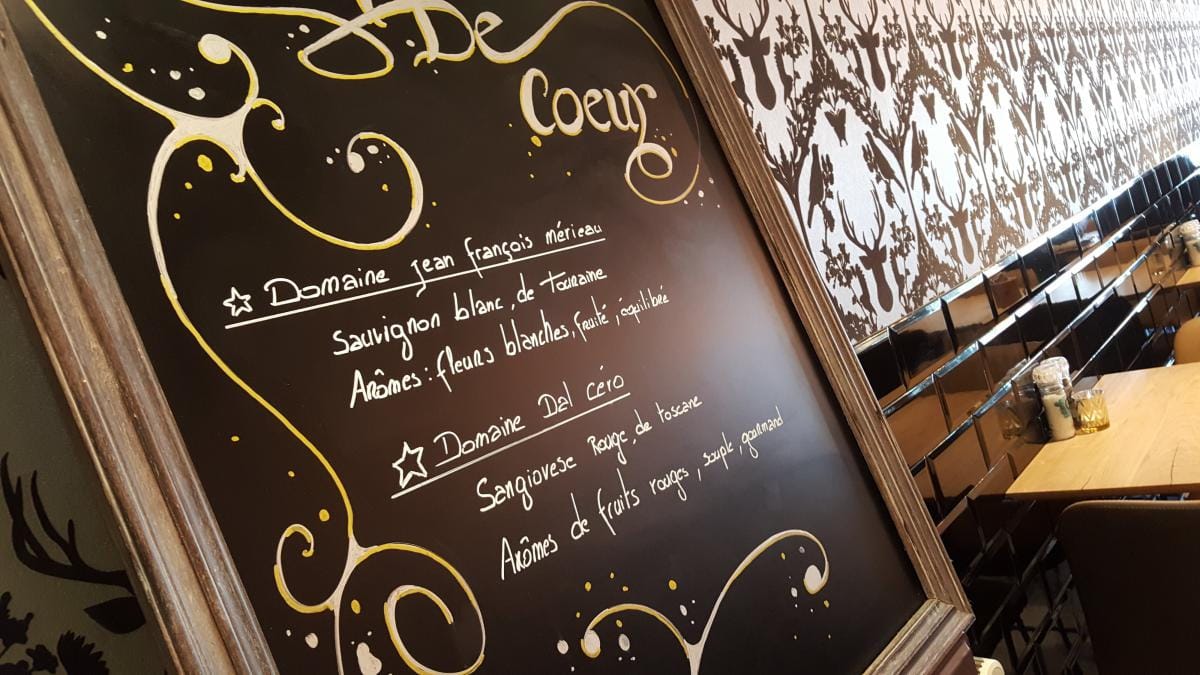 De
Coeur
Domaine Jean françois mérieau
Sauvignon blanc, de Touraine
Arômes : fleurs blanches, fruité, équilibré
Domaine Dal céro
Sangiovese Rouge, de toscane
Arômes de fruits rouges, souple, gourmand